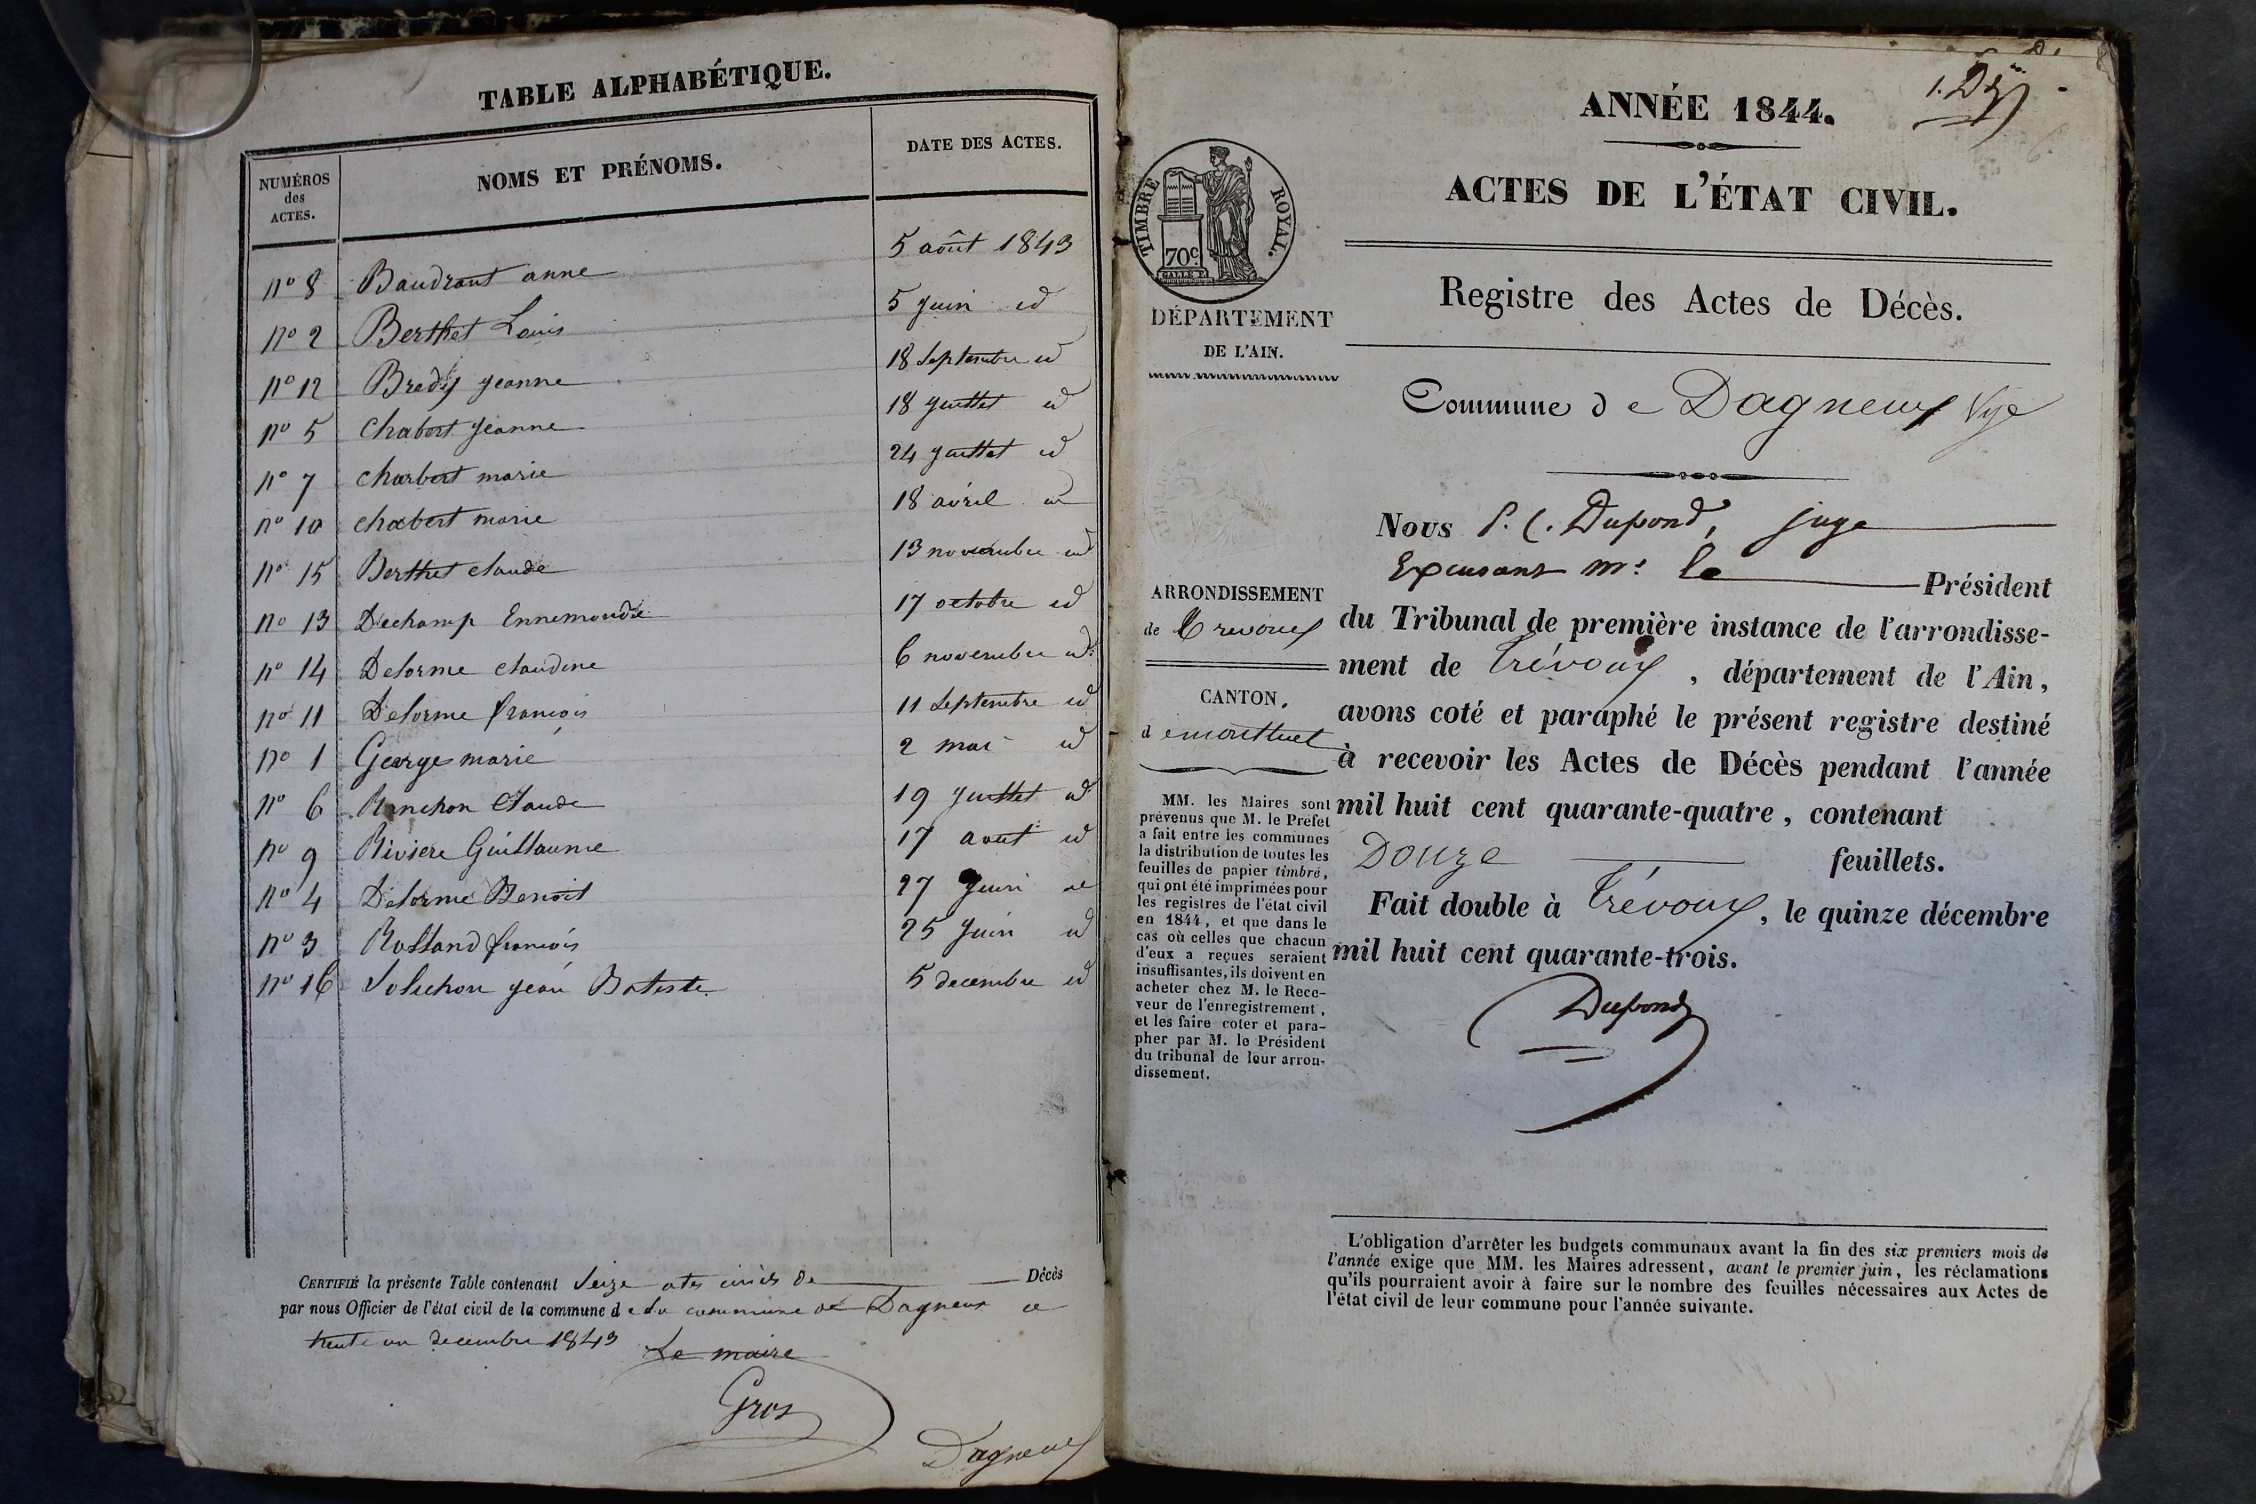 TABLE ALPHABÉTIQUE.
NUMÉROS des ACTES. NOMS ET PRÉNOMS. DATE DES ACTES.
no 8 Baudrant anne 5 août 1843
no 2 Berthet Louis 5 juin id
no 12 jeanne 18 Septembre id
no 5 Chabert jeanne 18 juillet id
no 7 charbert marie 24 juillet id
no 10 chabert marie 18 avril id
no 15 Berthet claude 13 novembre id
no 13 Dechamp Ennemonde 17 octobre id
no 14 Delorme claudine 6 novembre id
no 11 Delorme françois 11 Septembre id
no 1 George marie 2 mai id
no 6 Ranchon Claude 19 juillet id
no 9 Riviere Guillaume 17 aout id
no 4 Delorme Benoit 27 juin id
no 3 Rolland françois 25 juin id
no 16 Soluchon jean Batiste 5 decembre id
CERTIFIÉ la présente Table contenant Seize actes civils de Décès
par nous Officier de l'état civil de la commune d e la commune de Dagneux ce
trente un decembre 1843 Le maire
Gros
Dagneux
ANNÉE 1844.
ACTES DE L'ÉTAT CIVIL.
TIMBRE ROYAL.
70c.
DÉPARTEMENT
DE L'AIN.
Registre des Actes de Décès.
Commune d e Dagneux
ARRONDISSEMENT
de Trevoux
CANTON.
d e montluel
MM. les Maires sont
prévenus que M. le Préfet
a fait entre les communes
la distribution de toutes les
feuilles de papier timbré,
qui ont été imprimées pour
les registres de l'état civil
en 1844, et que dans le
cas où celles que chacun
d'eux a reçues seraient
insuffisantes, ils doivent en
acheter chez M. le Rece-
veur de l'enregistrement,
et les faire coter et para-
pher par M. le Président
du tribunal de leur arron-
dissement.
Nous P. C. Dupond, juge
Excusant mr. le Président
du Tribunal de première instance de l'arrondisse-
ment de Trévoux, département de l'Ain,
avons coté et paraphé le présent registre destiné
à recevoir les Actes de Décès pendant l'année
mil huit cent quarante-quatre, contenant
Douze feuillets.
Fait double à Trévoux, le quinze décembre
mil huit cent quarante-trois.
Dupond
L'obligation d'arrêter les budgets communaux avant la fin des six premiers mois de
l'année exige que MM. les Maires adressent, avant le premier juin, les réclamations
qu'ils pourraient avoir à faire sur le nombre des feuilles nécessaires aux Actes de
l'état civil de leur commune pour l'année suivante.